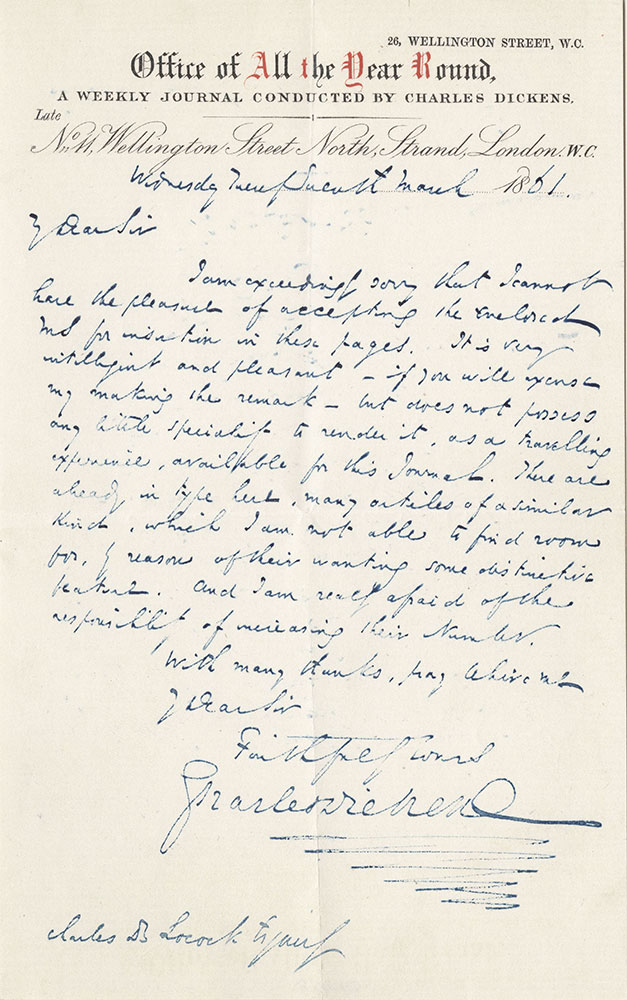 26, WELLINGTON STREET, W.C.
Office of All the Year Round,
A WEEKLY JOURNAL CONDUCTED BY CHARLES DICKENS.
Late
No. 11, Wellington Street North, Strand, London. W.C.
Wednesday March 1861.
My Dear Sir
I am exceedingly sorry that I cannot
have the pleasure of accepting the enclosed
MS for insertion in these pages. It is very
intelligent and pleasant – if you will excuse
my making the remark – but does not possess
any little specialty to render it, as a travelling
experience, available for this Journal. There are
already in type here, many articles of a similar
kind, which I am not able to find room
for, by reason of their wanting some distinctive
feature. And I am really afraid of the
responsibility of increasing their Number.
With many thanks, pray believe me
My Dear Sir
Faithfully Yours
Charles Dickens
Charles B Locock Esquire